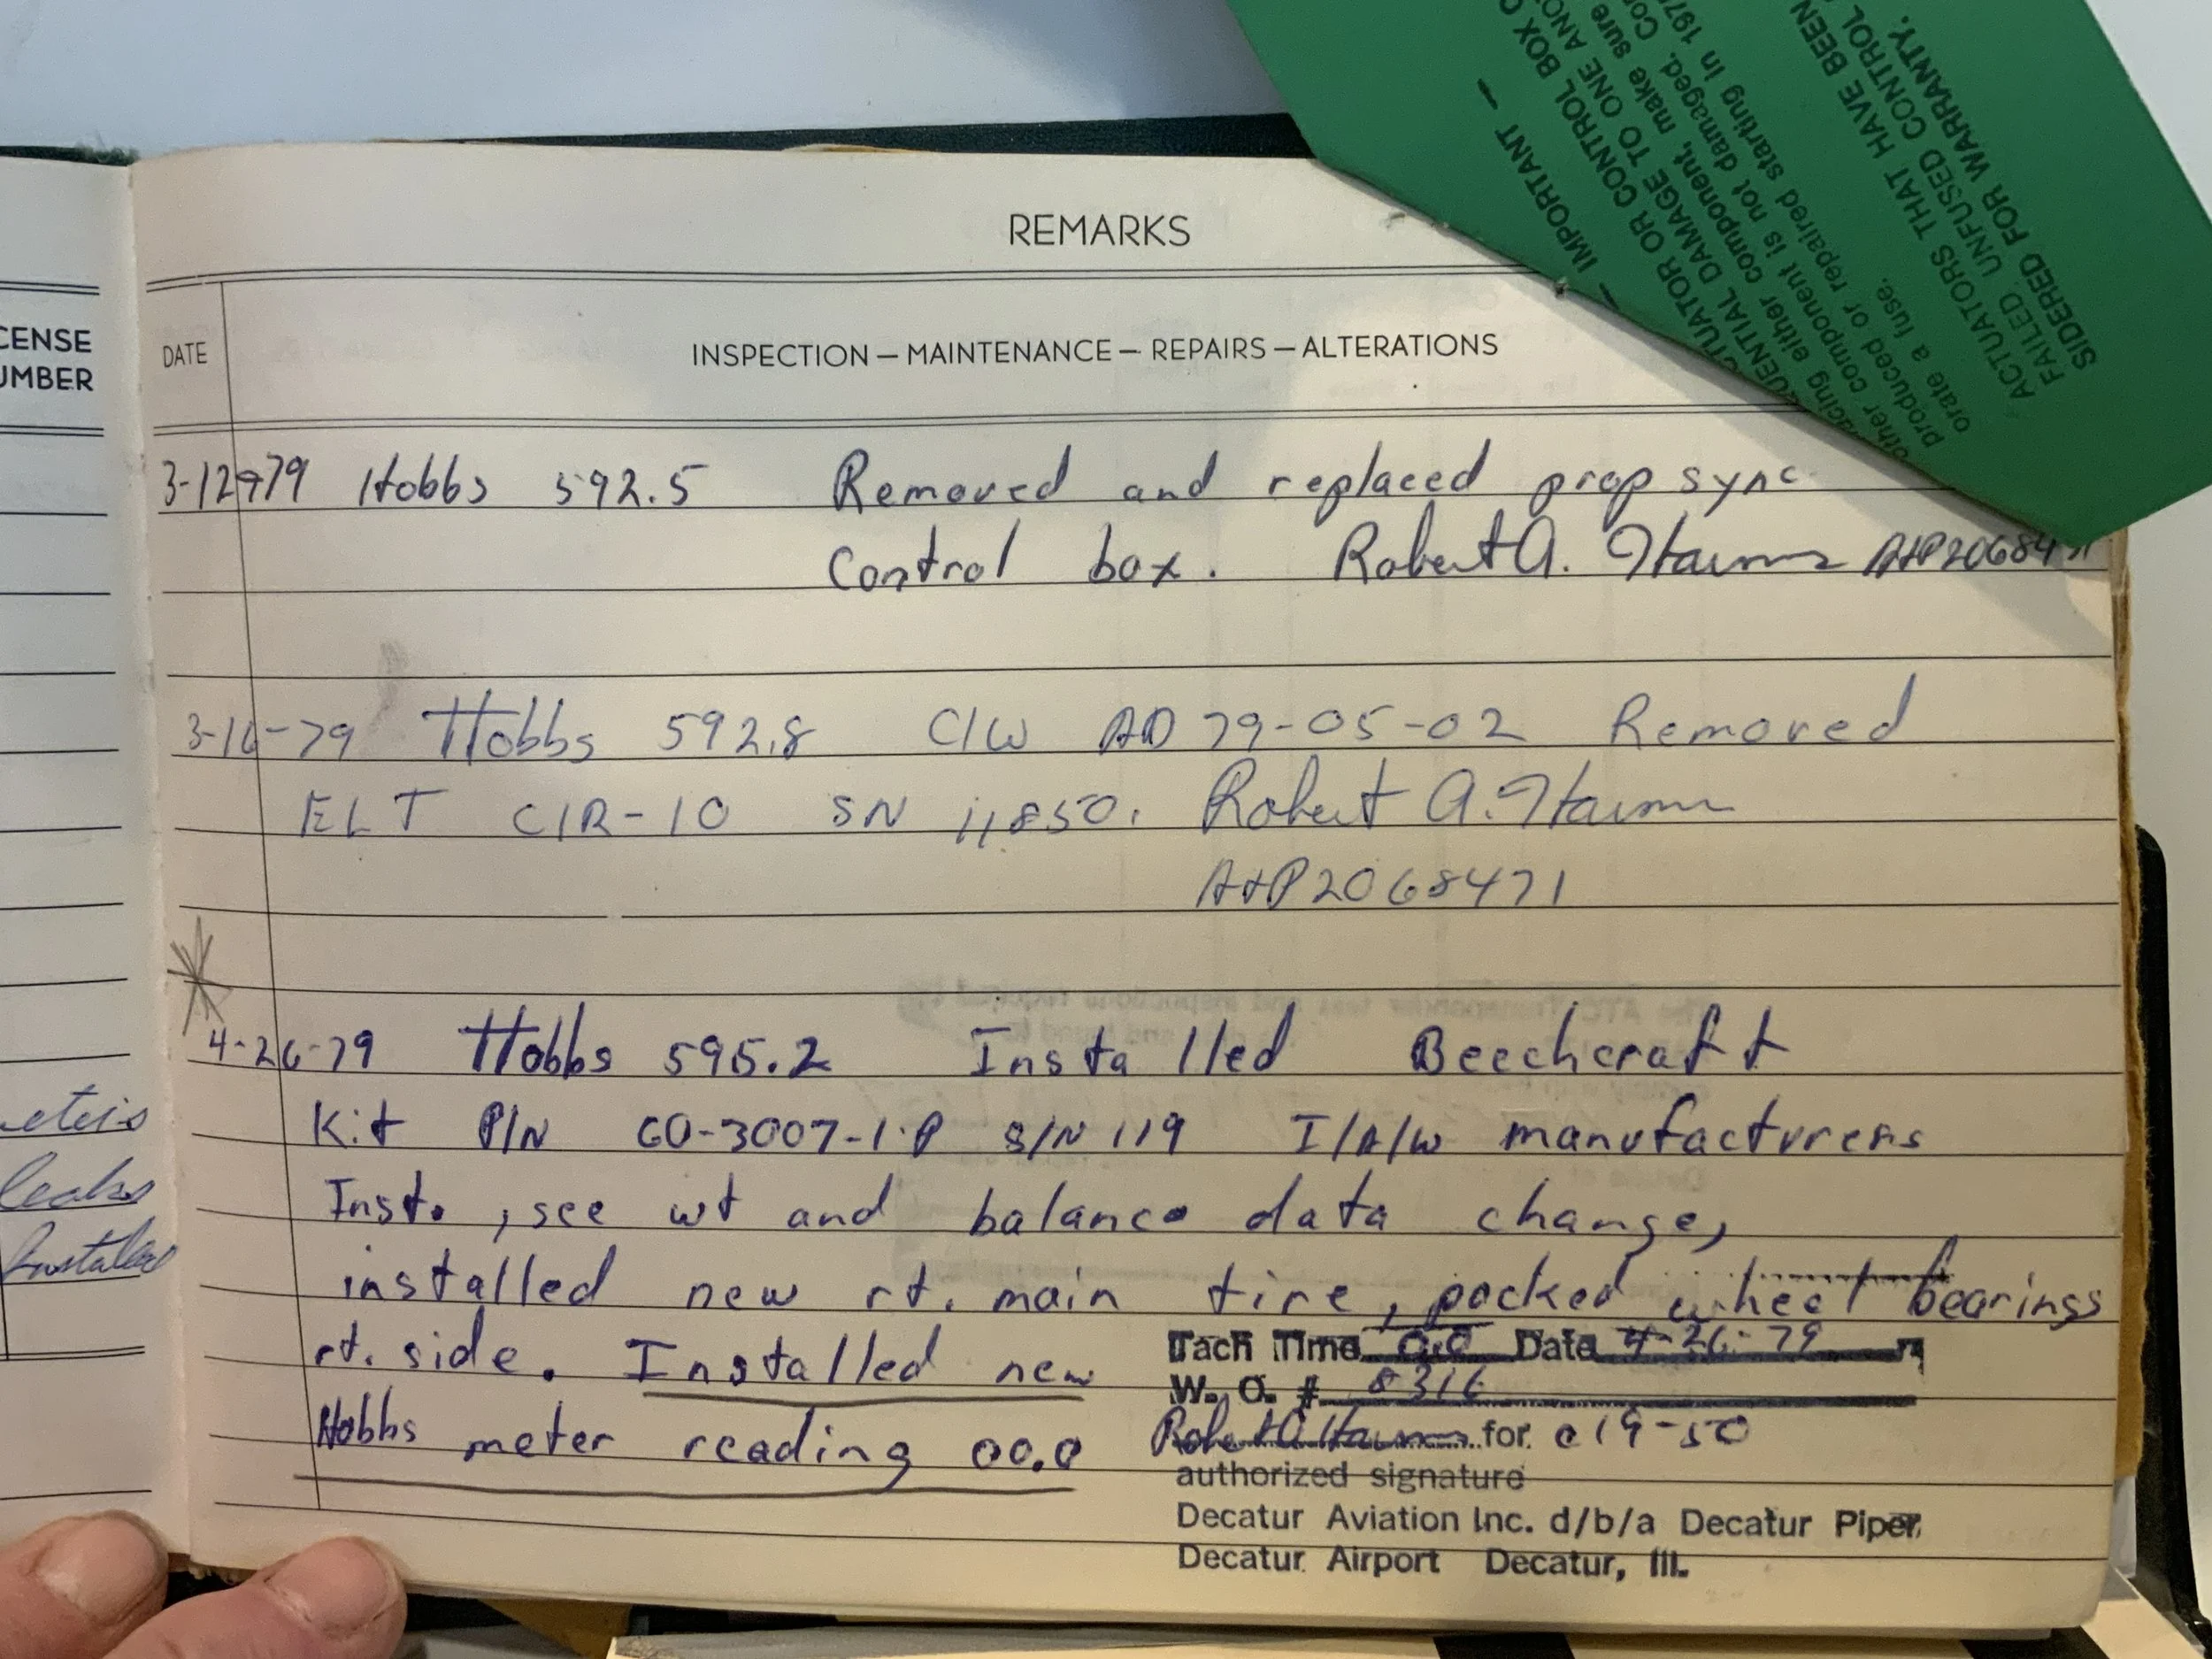 CENSE
UMBER
eters
leaks
Installed
REMARKS
DATE
INSPECTION — MAINTENANCE — REPAIRS — ALTERATIONS
3-12-79 Hobbs 592.5 Removed and replaced prop sync
Control box. Robert A. A+P 206847
3-16-79 Hobbs 592.8 C/W AD 79-05-02 Removed
ELT CIR-10 SN 11850. Robert A.
A+P 2068471
4-26-79 Hobbs 595.2 Installed Beechcraft
Kit P/N 60-3007-1P S/N 119 I/A/W manufacturers
Inst. , see wt and balance data change,
installed new rt. main tire, packed wheel bearings
rt. side. Installed new
Hobbs meter reading 00.0
Tach Time 0.0 Date 4-26-79
W. O. # 8316
Robert A. for c 19-50
authorized signature
Decatur Aviation Inc. d/b/a Decatur Piper
Decatur Airport Decatur, Ill.
— IMPORTANT —
TUATOR OR CONTROL BOX C
UENTIAL DAMAGE TO ONE ANO
acing either component, make sure
other component is not damaged. Co
produced or repaired starting in 197
orate a fuse.
ACTUATORS THAT HAVE BEEN
FAILED, UNFUSED CONTROL
SIDERED FOR WARRANTY.